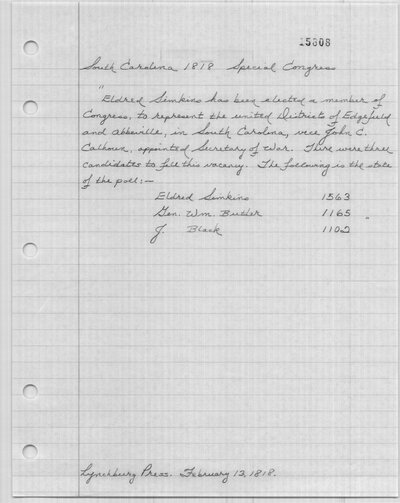 15808
South Carolina 1818 Special Congress
"Eldred Simkins has been elected a member of
Congress, to represent the united Districts of Edgefield
and Abbeville, in South Carolina, vice John C.
Calhoun, appointed Secretary of War. There were three
candidates to fill this vacancy. The following is the state
of the poll:—
Eldred Simkins 1563
Gen. Wm. Butler 1165 "
J. Black 1102
Lynchburg Press. February 13, 1818.